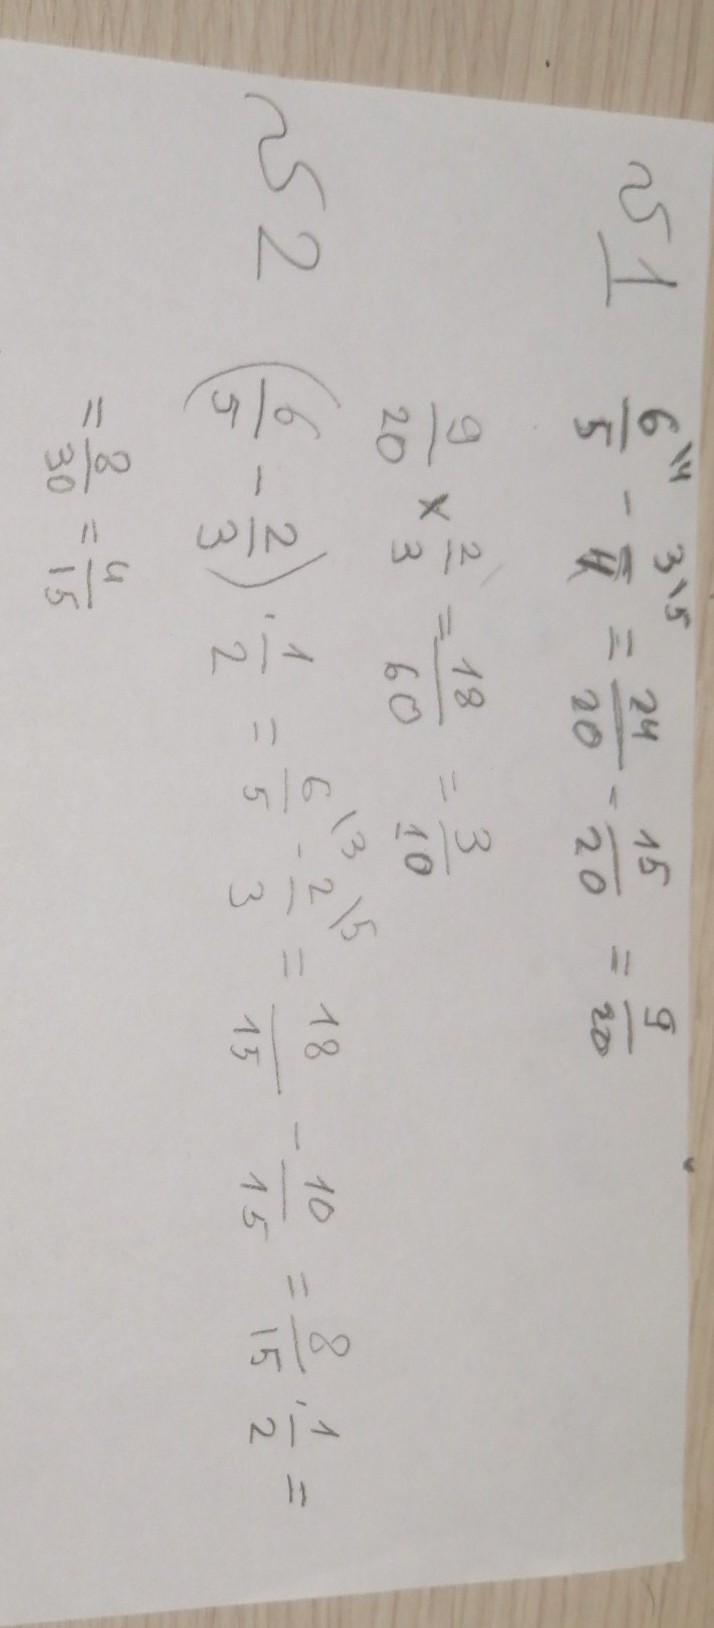 №1 6/5\4 - 3/4\5 = 24/20 - 15/20 = 9/20
9/20 × 2/3 = 18/60 = 3/10
№2 (6/5 - 2/3) · 1/2 = 6/5\3 - 2/3\5 = 18/15 - 10/15 = 8/15 · 1/2 =
= 8/30 = 4/15